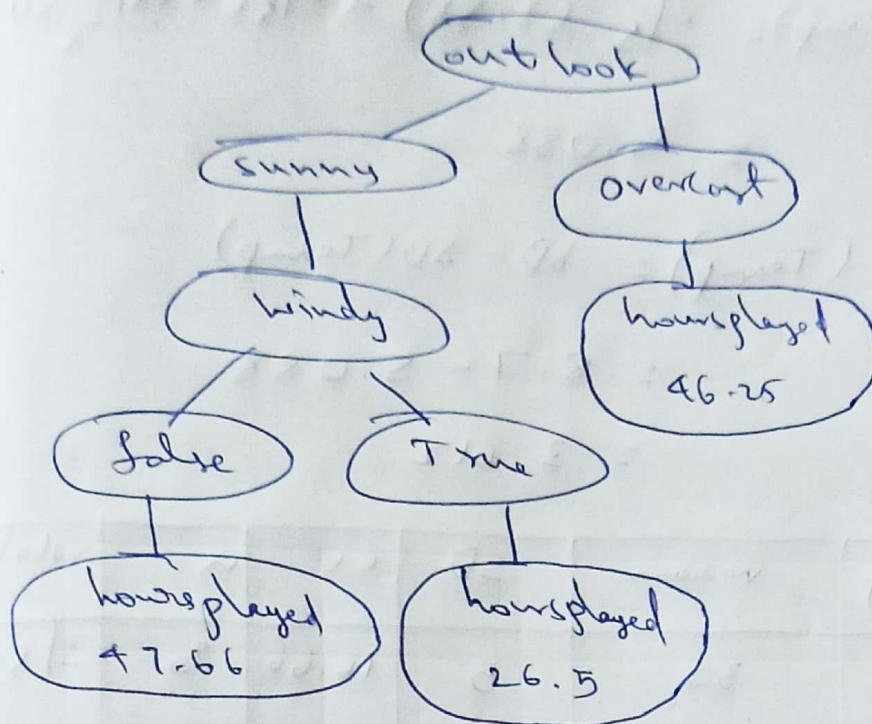 outlook
sunny
overcast
windy
hoursplayed
46.25
false
True
hoursplayed
47.66
hoursplayed
26.5